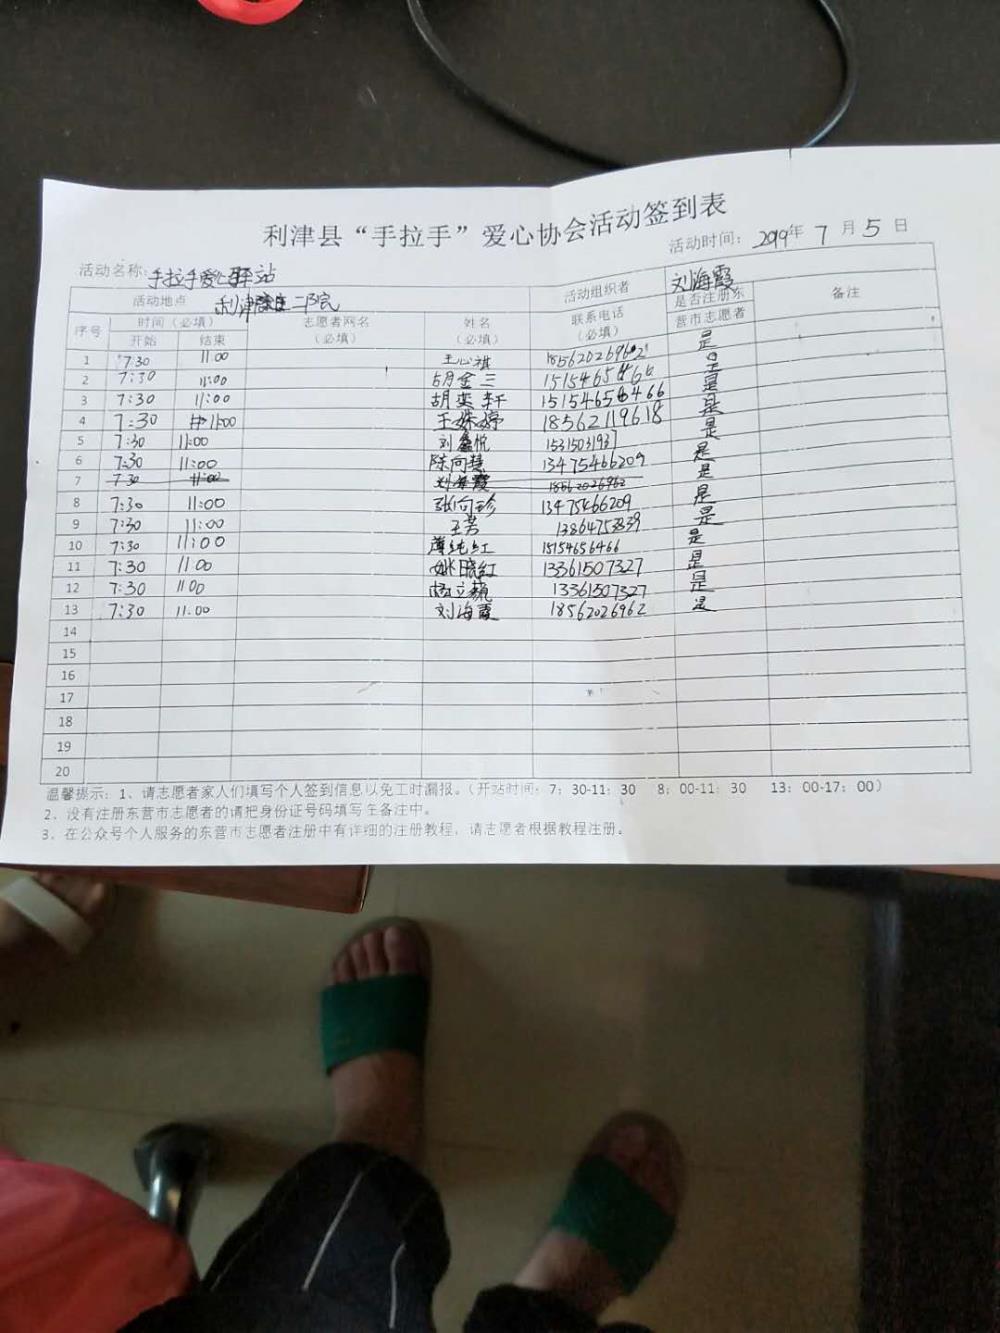 利津县“手拉手”爱心协会活动签到表
活动时间：2019年 7 月 5 日
活动名称：手拉手爱心驿站
活动地点 利津 二院 活动组织者 刘海霞 备注
序号 时间（必填） 志愿者网名 姓名 联系电话 是否注册东
开始 结束 （必填） （必填） （必填） 营市志愿者
1 7:30 11:00 王心祺 18562026962 是
2 7:30 11:00 胡金三 是
3 7:30 11:00 胡奕轩 15154656466 是
4 7:30 11:00 王姝婷 18562119618 是
5 7:30 11:00 刘鑫悦 15315031937 是
6 7:30 11:00 陈向慧 13475466209 是
7 7:30 11:00 刘海霞 18562026962 是
8 7:30 11:00 张向珍 13475466209 是
9 7:30 11:00 王芳 13864753839 是
10 7:30 11:00 薄纯红 15154656466 是
11 7:30 11:00 姚晓红 13361507327 是
12 7:30 11:00 杨立巍 13361507327 是
13 7:30 11:00 刘海霞 18562026962 是
14
15
16
17
18
19
20
温馨提示：1、请志愿者家人们填写个人签到信息以免工时漏报。（开站时间：7：30-11：30 8：00-11：30 13：00-17：00）
2、没有注册东营市志愿者的请把身份证号码填写在备注中。
3、在公众号个人服务的东营市志愿者注册中有详细的注册教程，请志愿者根据教程注册。